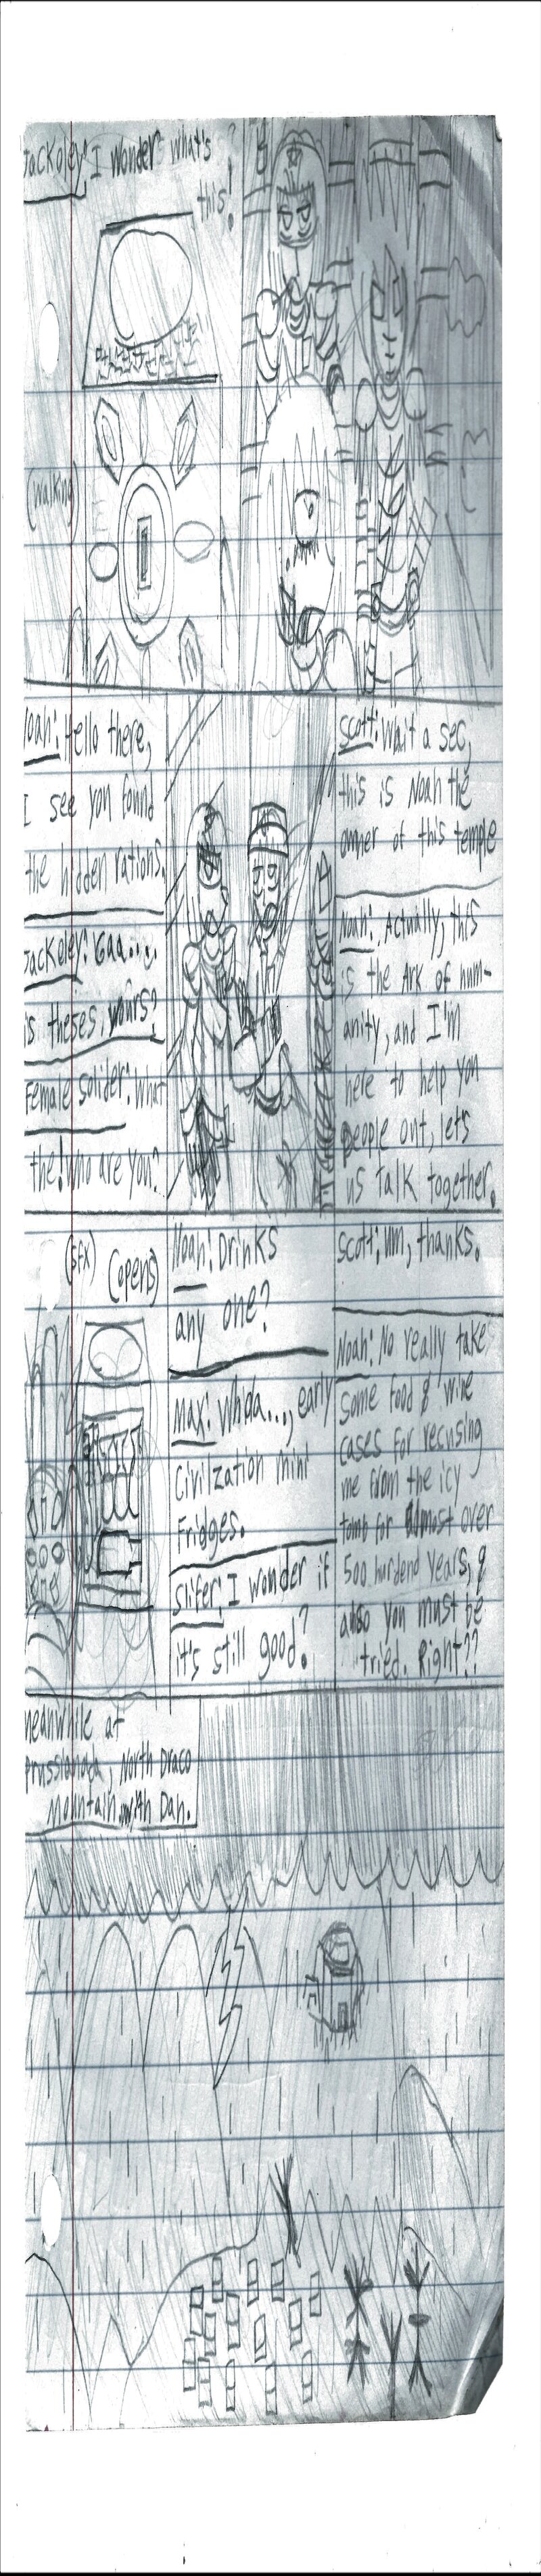 Jackoley: I wonder what's
this!
(walking)
Noah: Hello there,
I see you found
the hidden rations.
Jackoley: Gaa....
is theses, yours?
Female solider: What
the! who are you?
Scott: Wait a sec,
this is Noah the
owner of this temple
Noah: Actually, this
is the Ark of hum-
anity, and I'm
here to help you
people out, lets
us talk together.
(SFX)
(opens)
Noah: Drinks
any one?
Max: Whoa..., early
Civilzation mini
Fridges.
Slifer: I wonder if
it's still good?
Scott: um, thanks.
Noah: No really take
some food & wine
cases for rescusing
me from the icy
tomb for almost over
500 hurdend years, &
also you must be
tried. Right??
meanwhile at
North Draco
Mountain with Dan.